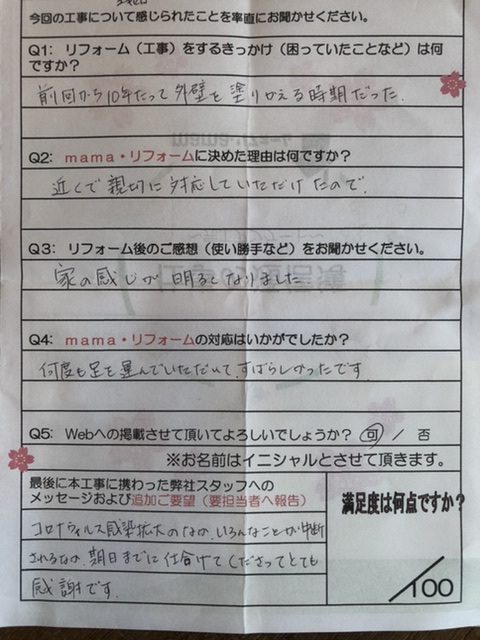 今回の工事について感じられたことを率直にお聞かせください。
Q1: リフォーム（工事）をするきっかけ（困っていたことなど）は何
ですか？
前回から10年たって外壁を塗りかえる時期だった.
Q2: mama・リフォームに決めた理由は何ですか？
近くで親切に対応していただけたので.
Q3: リフォーム後のご感想（使い勝手など）をお聞かせください。
家の感じが明るくなりました
Q4: mama・リフォームの対応はいかがでしたか？
何度も足を運んでいただいて.すばらしかったです.
Q5: Webへの掲載させて頂いてよろしいでしょうか？ 可 / 否
※お名前はイニシャルとさせて頂きます。
最後に本工事に携わった弊社スタッフへの
メッセージおよび追加ご要望（要担当者へ報告）
コロナウィルス感染拡大のなか.いろんなことが中断
されるなか.期日までに仕合けてくださってとても
感謝です.
満足度は何点ですか?
/100